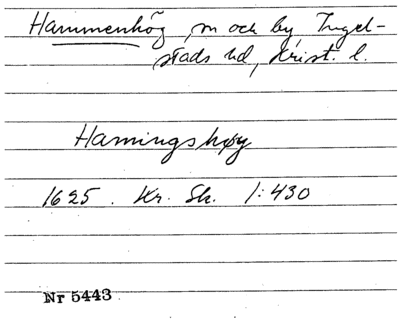 Hammenhög sn och by Ingel-
stads hd, Krist. l.
Hamingshøy
1625. Kr. Sk. 1:430
Nr 5443